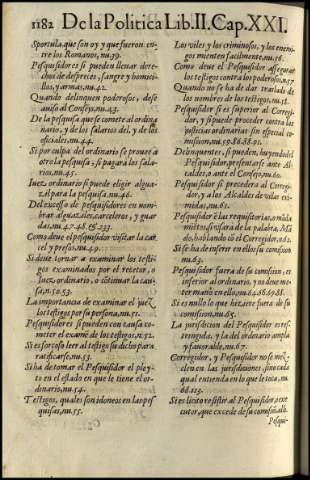 1182 De la Politica Lib. II. Cap. XXI.
Sportula, que son oy y que fueron entre
los Romanos, nu. 39.
Pesquisidores si pueden lleuar derechos
de despreces, sangre y homicillos,
y armas, nu. 42.
Quando delinquen poderosos, dese
auiso al Consejo, nu. 43.
De la pesquisa que se comete al ordinario,
y de los salarios del, y de los
oficiales, nu. 44.
Si por culpa del ordinario se prouee a
otro la pesquisa, si pagarà los salarios,
nu. 45.
Juez ordinario si puede eligir alguazil
para la pesquisa, nu. 46.
Del excesso de pesquisidores en nombrar
alguaziles, carceleros, y guardas,
nu. 47. 48. &. 233.
Como deue el pesquisidor visitar la carcel
y presos, nu. 49.
Si deue tornar a examinar los testigos
examinados por el retetor, o
Juez ordinario, o continuar la causa,
n. 50. 53.
La importancia de examinar el juez
los testigos por su persona, nu. 51.
Pesquisidores si pueden con causa cometer
el examē de los testigos, n. 52.
Si es forçoso leer al testigo su dicho para
ratificarse, nu. 53.
Si ha de tomar el Pesquisidor el pleyto
en el estado en que le tiene el ordinario,
nu. 54.
Testigos, quales son idoneos en las pesquisas,
nu. 55.
Los viles y los criminosos, y los enemigos
mienten facilmente, nu. 56.
Como deue el Pesquisidor assegurar
los testigos contra los poderosos, n. 57
Quando no se ha de dar traslado de
los nombres de los testigos, nu. 58.
Pesquisidor si es superior al Corregidor,
y si puede proceder contra las
justicias ordinarias sin especial comission,
nu. 59. 86. 88. 91.
Delinquentes, si pueden, huyendo del
Pesquisidor, presentarse ante Alcaldes,
o ante el Consejo, nu. 60.
Pesquisidor si precedera al Corregidor,
y a los Alcaldes de villas eximidas,
nu. 61.
Pesquisidor ē las requisitorias, o mādamiētos,
si vsara de la palabra, Mādo,
hablando cō el Corregidor, n. 62.
Si se ha de inserir en ellos su comisiō
nu. 63.
Pesquisidor fuera de su comision, es
inferior al ordinario, y no deue meter
mano en ello, nu. 64. 86. 91. 98.
Si es nullo lo que hiziere fuera de su
comission, nu. 65.
La jurisdicion del Pesquisidor es restringida:
y la del ordinario amplia
y fauorable, nu. 67.
Corregidor, y Pesquisidor no se mezclen
en las jurisdiciones, sino cada
qual entienda en lo que le toca, nu.
68. 123.
Si es licito resistir al Pesquisidor, o executor,
que excede de su comisiō, al ō.
Pesqui-